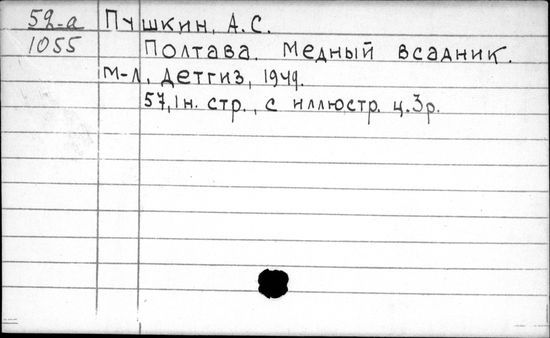 52-а
1055
Пушкин, А.С.
Полтава. Медный всадник.
М-Л, Детгиз, 1949.
57,1н. стр., с иллюстр. ц.3р.